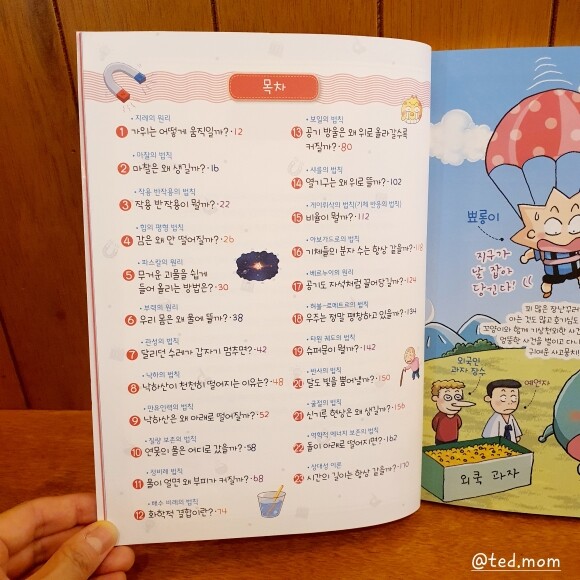 목차
• 지레의 원리
1 가위는 어떻게 움직일까? • 12
• 마찰의 법칙
2 마찰은 왜 생길까? • 16
• 작용 반작용의 법칙
3 작용 반작용이 뭘까? • 22
• 힘의 평형 법칙
4 감은 왜 안 떨어질까? • 26
• 파스칼의 원리
5 무거운 괴물을 쉽게
들어 올리는 방법은? • 30
• 부력의 원리
6 우리 몸은 왜 물에 뜰까? • 38
• 관성의 법칙
7 달리던 수레가 갑자기 멈추면? • 42
• 낙하의 법칙
8 낙하산이 천천히 떨어지는 이유는? • 48
• 만유인력의 법칙
9 낙하산은 왜 아래로 떨어질까? • 52
• 질량 보존의 법칙
10 연못의 물은 어디로 갔을까? • 58
• 성비례의 법칙
11 물이 얼면 왜 부피가 커질까? • 68
• 배수 비례의 법칙
12 화학적 결합이란? • 74
• 보일의 법칙
13 공기 방울은 왜 위로 올라갈수록
커질까? • 80
• 샤를의 법칙
14 열기구는 왜 위로 뜰까? • 102
• 게이뤼삭의 법칙(기체 반응의 법칙)
15 비율이 뭘까? • 112
• 아보가드로의 법칙
16 기체들의 분자 수는 항상 같을까? • 118
• 베르누이의 원리
17 공기도 자석처럼 끌어당길까? • 124
• 허블-르메트르의 법칙
18 우주는 정말 팽창하고 있을까? • 134
• 티끌 쿼드의 법칙
19 슈퍼문이 뭘까? • 142
• 반사의 법칙
20 달도 빛을 뿜어낼까? • 150
• 굴절의 법칙
21 신기루 현상은 왜 생길까? • 156
• 역학적 에너지 보존의 법칙
22 돌이 아래로 떨어지면? • 162
• 상대성 이론
23 시간의 길이는 항상 같을까? • 170
뽀롱이
지구가
날 잡아
당긴다!
외국인
과자 장수
예언자
외쿡 과자
@ted.mom